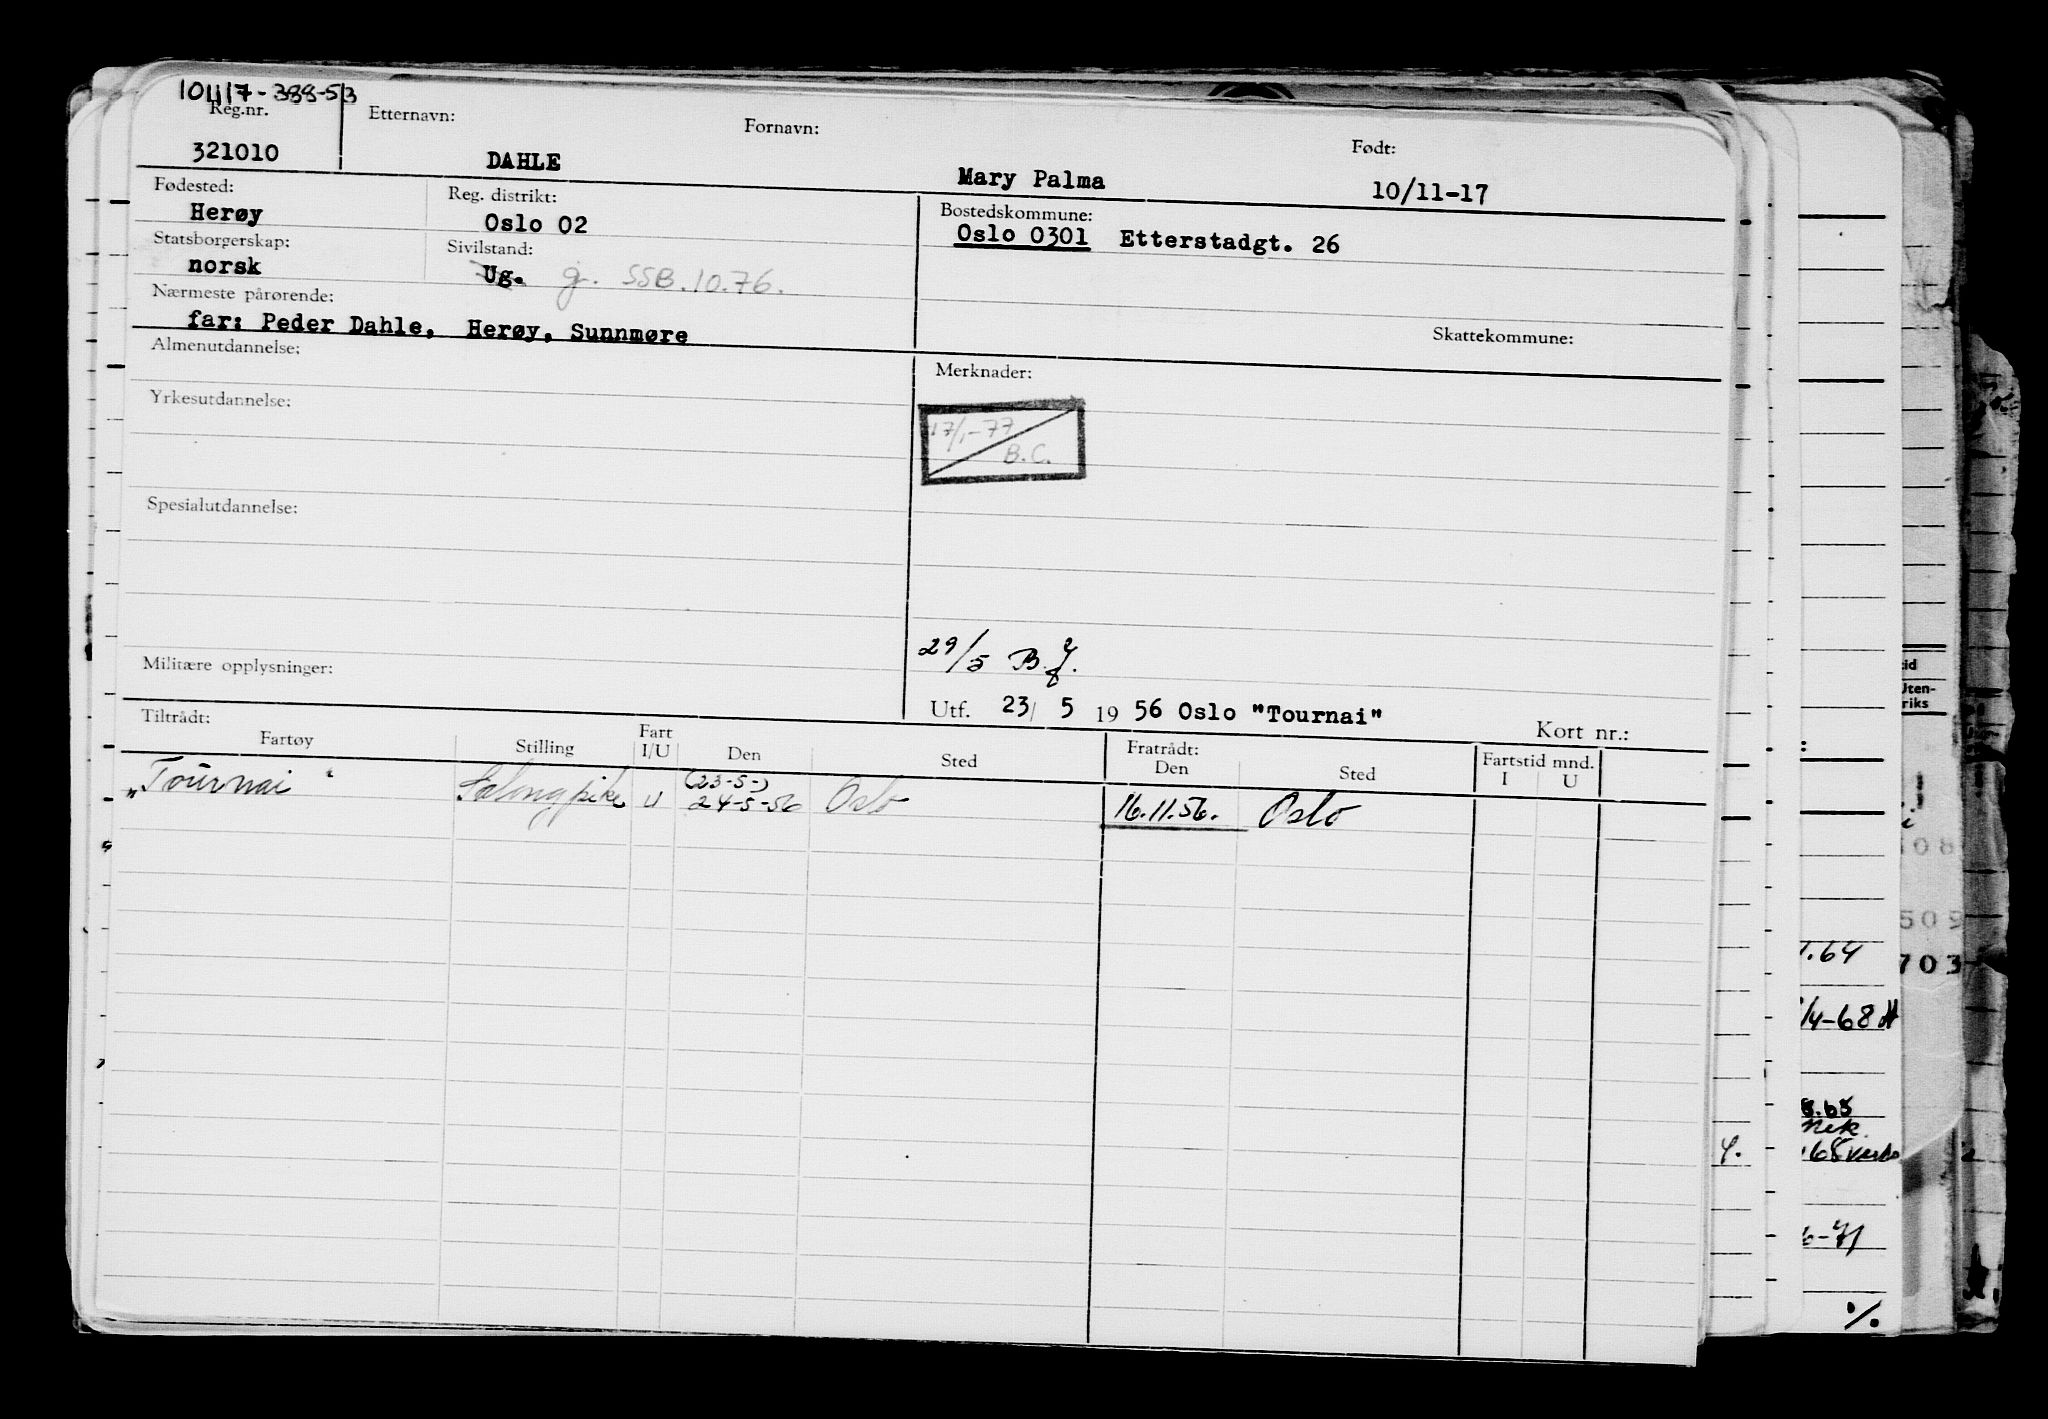 101117-388-53
Reg.nr. Etternavn: Fornavn: Født:
321010 DAHLE Mary Palma 10/11-17
Fødested: Reg. distrikt: Bostedskommune:
Herøy Oslo 02 Oslo 0301 Etterstadgt. 26
Statsborgerskap: Sivilstand:
norsk Ug. g. SSB.10.76.
Nærmeste pårørende:
far: Peder Dahle, Herøy, Sunnmøre Skattekommune:
Almenutdannelse: Merknader:
Yrkesutdannelse:
17/1-77
B.C.
Spesialutdannelse:
29/5 B.J.
Militære opplysninger:
Utf. 23/ 5 19 56 Oslo "Tournai" Kort nr.:
Tiltrådt: Fratrådt: Fartstid mnd.
Fartøy Stilling Fart I/U Den Sted Den Sted I U
(23-5-)
"Tournai" Salongpike U 24-5-56 Oslo 16.11.56. Oslo
id
Uten-
riks
:
08
509
.64
703
/4-68
8.65
4.
6-71
%.